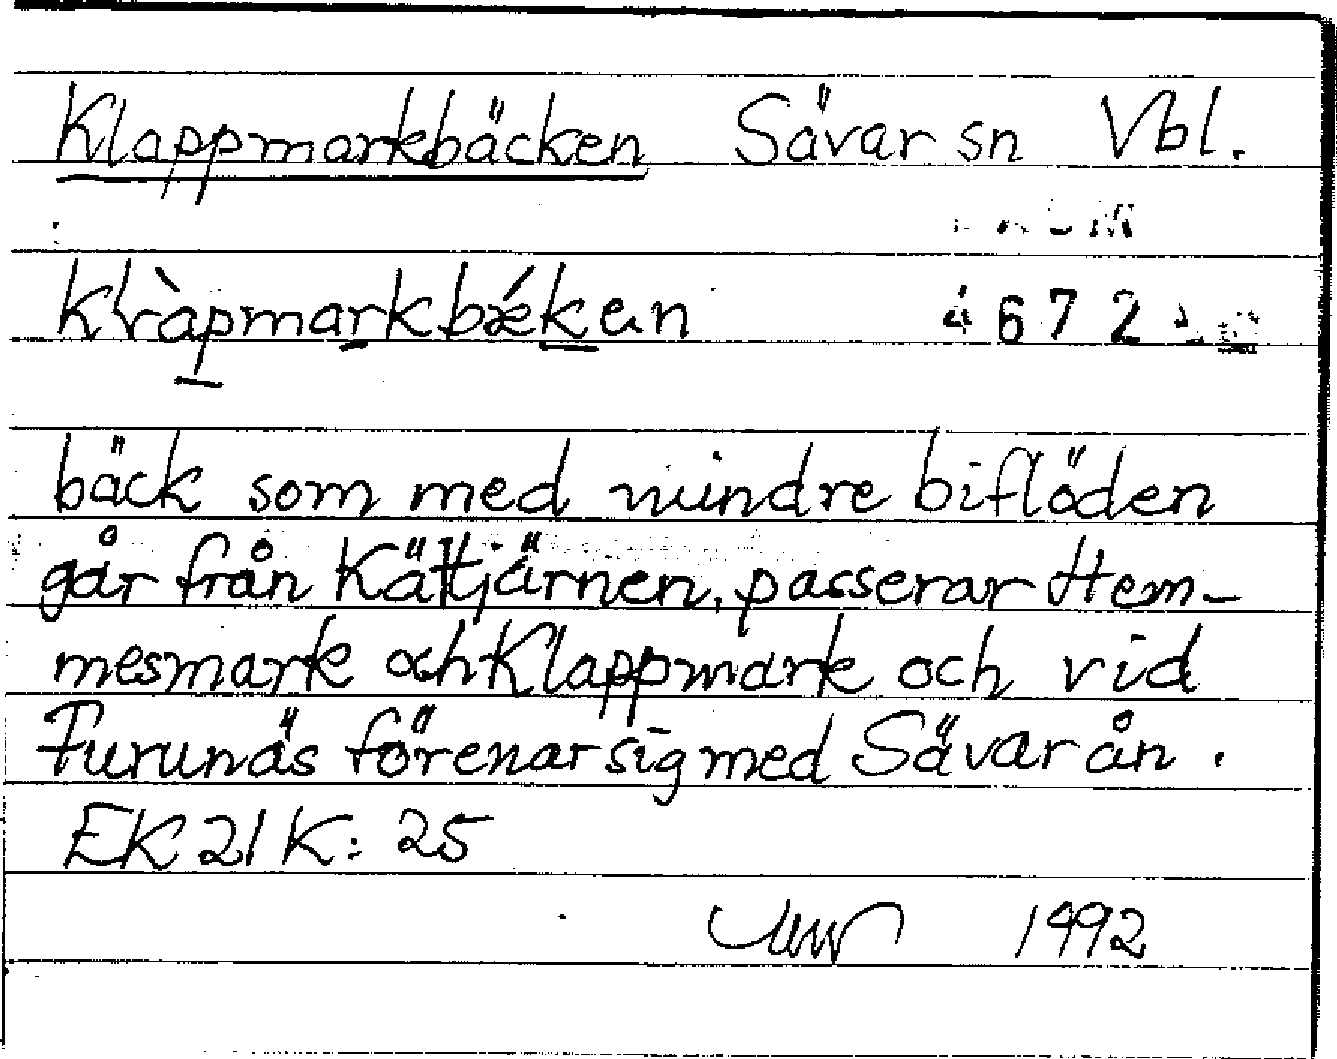 Klappmarkbäcken Sävar sn Vbl.
bäck som med mindre biflöden
går från Kättjärnen, passerar Hem-
mesmark och Klappmark och vid
Furunäs förenar sig med Sävarån.
EK 21 K: 25
1992